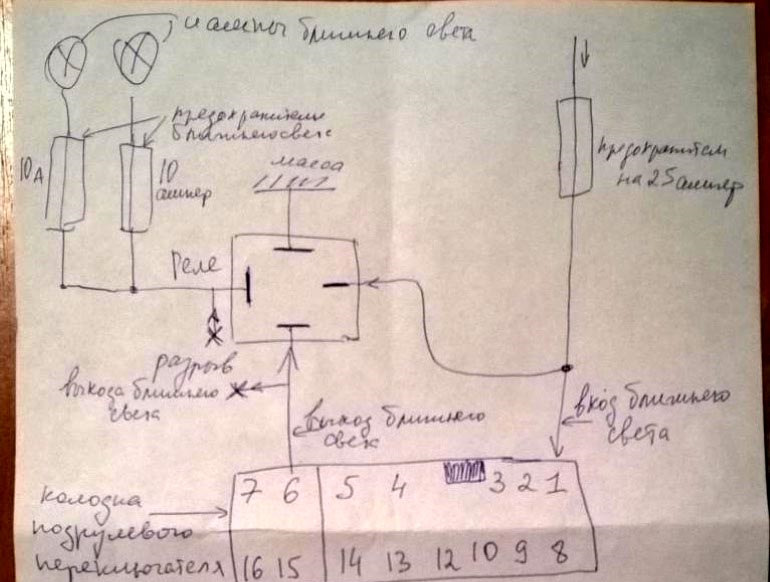 лампы ближнего света
предохранители
ближнего свет
10 А
10
ампер
масса
предохранитель
на 25 ампер
Реле
разрыв
выхода ближнего
света
выход ближнего
свет
вход ближнего
света
колодка
подрулевого
переключателя
7 6 5 4 3 2 1
16 15 14 13 12 10 9 8